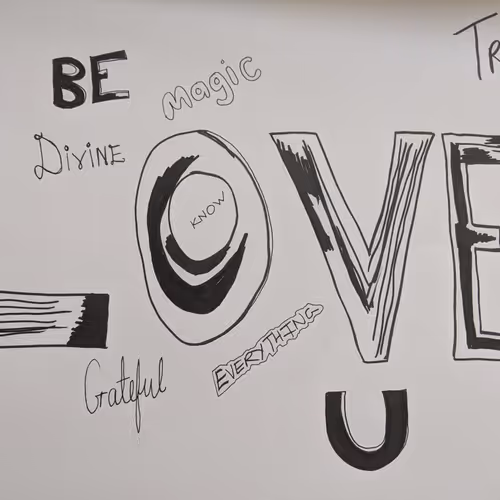 BE
Magic
TR
Divine
LOVE
KNOW
EVERYTHING
Grateful
U